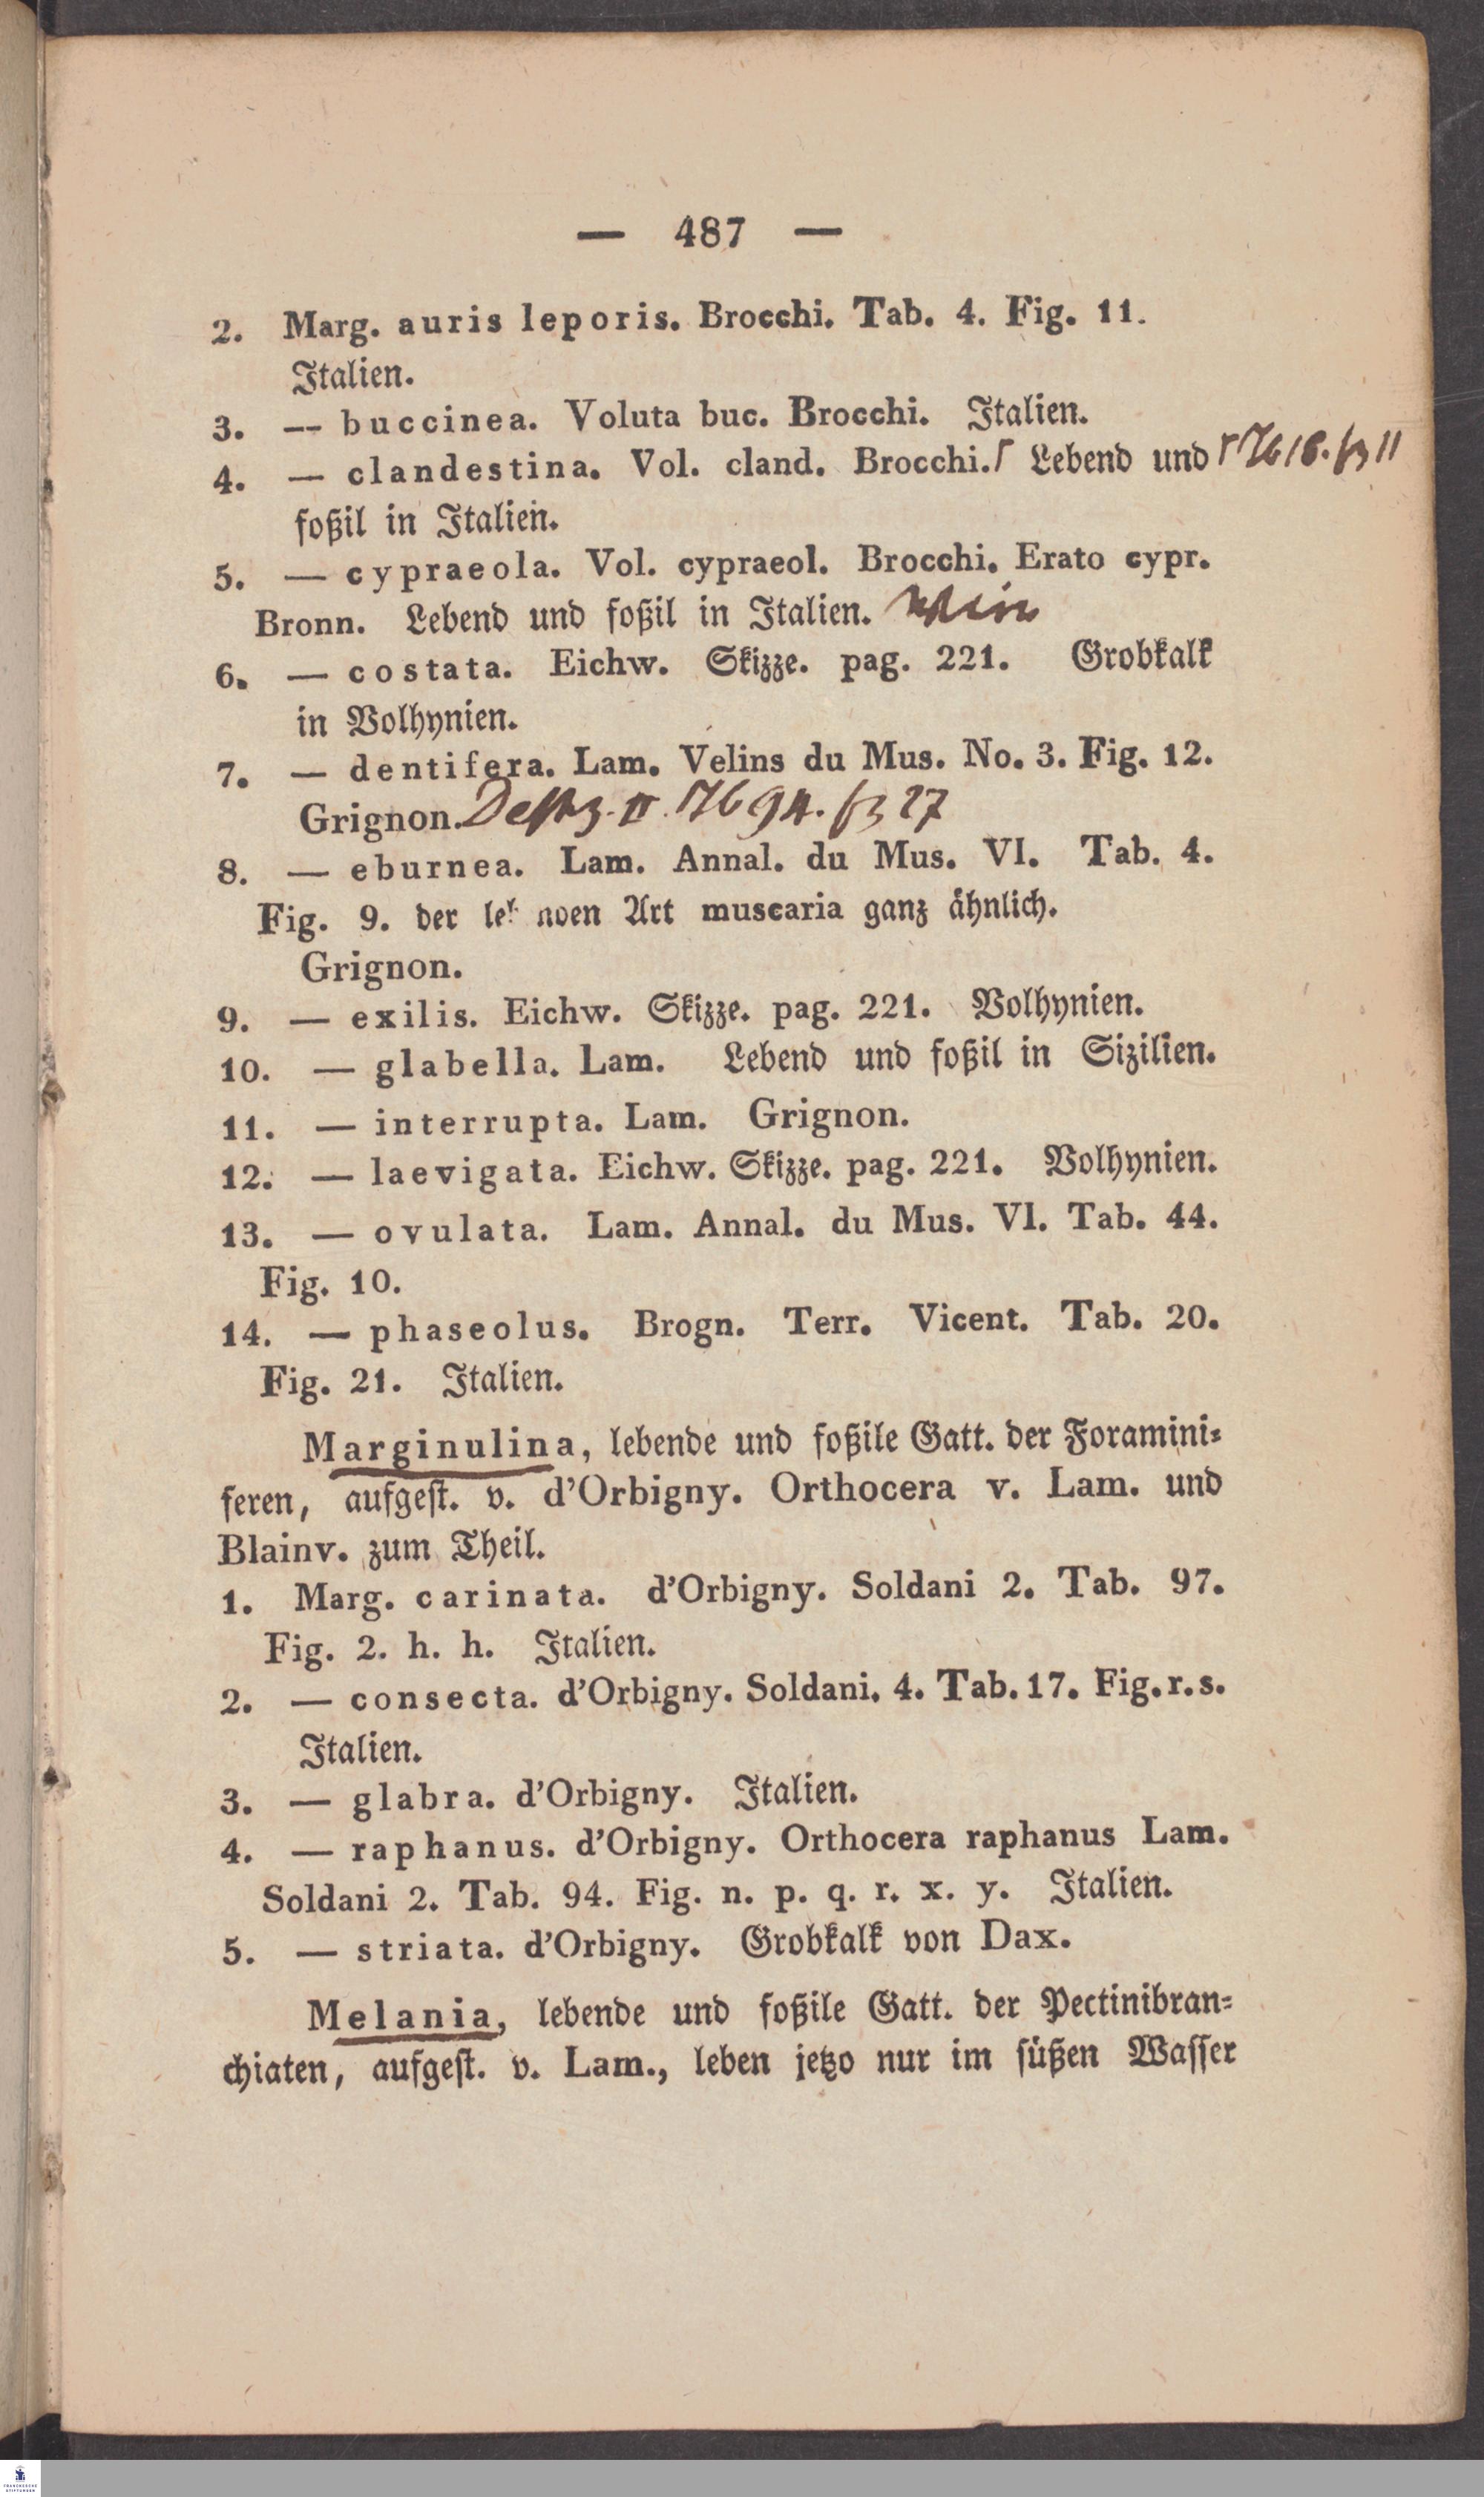 — 487 —
2. Marg. auris leporis. Brocchi. Tab. 4. Fig. 11.
Italien.
3. — buccinea. Voluta buc. Brocchi. Italien.
4. — clandestina. Vol. cland. Brocchi. Lebend und
foßil in Italien.
5. — cypraeola. Vol. cypraeol. Brocchi. Erato cypr.
Bronn. Lebend und foßil in Italien.
6. — costata. Eichw. Skizze. pag. 221. Grobkalk
in Volhynien.
7. — dentifera. Lam. Velins du Mus. No. 3. Fig. 12.
Grignon.
8. — eburnea. Lam. Annal. du Mus. VI. Tab. 4.
Fig. 9. der Art muscaria ganz ähnlich.
Grignon.
9. — exilis. Eichw. Skizze. pag. 221. Volhynien.
10. — glabella. Lam. Lebend und foßil in Sizilien.
11. — interrupta. Lam. Grignon.
12. — laevigata. Eichw. Skizze. pag. 221. Volhynien.
13. — ovulata. Lam. Annal. du Mus. VI. Tab. 44.
Fig. 10.
14. — phaseolus. Brogn. Terr. Vicent. Tab. 20.
Fig. 21. Italien.
Marginulina, lebende und foßile Gatt. der Foramini-
feren, aufgest. v. d'Orbigny. Orthocera v. Lam. und
Blainv. zum Theil.
1. Marg. carinata. d'Orbigny. Soldani 2. Tab. 97.
Fig. 2. h. h. Italien.
2. — consecta. d'Orbigny. Soldani. 4. Tab. 17. Fig. r. s.
Italien.
3. — glabra. d'Orbigny. Italien.
4. — raphanus. d'Orbigny. Orthocera raphanus Lam.
Soldani 2. Tab. 94. Fig. n. p. q. r. x. y. Italien.
5. — striata. d'Orbigny. Grobkalk von Dax.
Melania, lebende und foßile Gatt. der Pectinibran-
chiaten, aufgest. v. Lam., leben jetzo nur im süßen Wasser